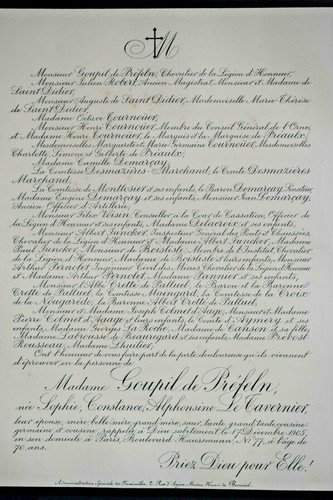 Monsieur Goupil de Préfeln, Chevalier de la Légion d'Honneur,
Monsieur Julien Robert, Ancien Magistrat, Monsieur et Madame de
Saint Didier,
Monsieur Auguste de Saint Didier, Mademoiselle Marie Thérèse
de Saint Didier,
Madame Octave Cournoüer,
Monsieur Henri Cournoüer, Membre du Conseil Général de l'Orne,
et Madame Henri Cournoüer, le Marquis et la Marquise de Preaulx,
Mesdemoiselles Marguerite et Marie Germaine Cournoüer, Mesdemoiselles
Charlotte, et Gilberte de Preaulx,
Madame Camille Demarçay,
La Comtesse Desmazières-Marchand, le Comte Desmazières
Marchand,
La Comtesse de Monttesier et ses enfants, le Baron Demarçay, Sénateur,
Madame Eugène Demarçay et ses enfants, Monsieur Jean Demarçay,
Ancien Officier d'Artillerie,
Monsieur Félix Voisin, Conseiller à la Cour de Cassation, Officier de
la Légion d'Honneur et ses enfants, Madame et ses enfants,
Monsieur Albert, Inspecteur Général des Ponts et Chaussées,
Chevalier de la Légion d'Honneur et Madame Albert, Madame
Paul, Monsieur de Boislisle, Membre de l'Institut, Chevalier
de la Légion d'Honneur, Madame de Boislisle et leurs enfants, Monsieur
Arthur Pernolet, Ingénieur Civil des Mines, Chevalier de la Légion d'Honneur
et Madame Arthur Pernolet, Madame et ses enfants,
Monsieur l'Abbé Crette de Palluel, le Baron et la Baronne
Crette de Palluel, la Comtesse, la Comtesse de la Croix
de la Nougarède, la Baronne Albert Crette de Palluel,
Monsieur et Madame Joseph, Monsieur et Madame
Pierre et leurs enfants, le Comte d'Aymery et ses
enfants, Madame Georges La Roche, Madame de Canson et sa fille,
Madame Labrousse de Beauregard et ses enfants, Madame Prévost
Rousseau, Madame Lhuilier,
Ont l'honneur de vous faire part de la perte douloureuse qu'ils viennent
d'éprouver en la personne de
Madame Goupil de Préfeln,
née Sophie, Constance, Alphonsine Le Tavernier,
leur épouse, mère, belle-mère, grand'mère, sœur, tante, grand'tante, cousine
germaine et cousine, rappelée à Dieu subitement le 1er Décembre 1905,
en son domicile à Paris, Boulevard Haussmann, No 77, à l'âge de
70 ans.
Priez Dieu pour Elle!